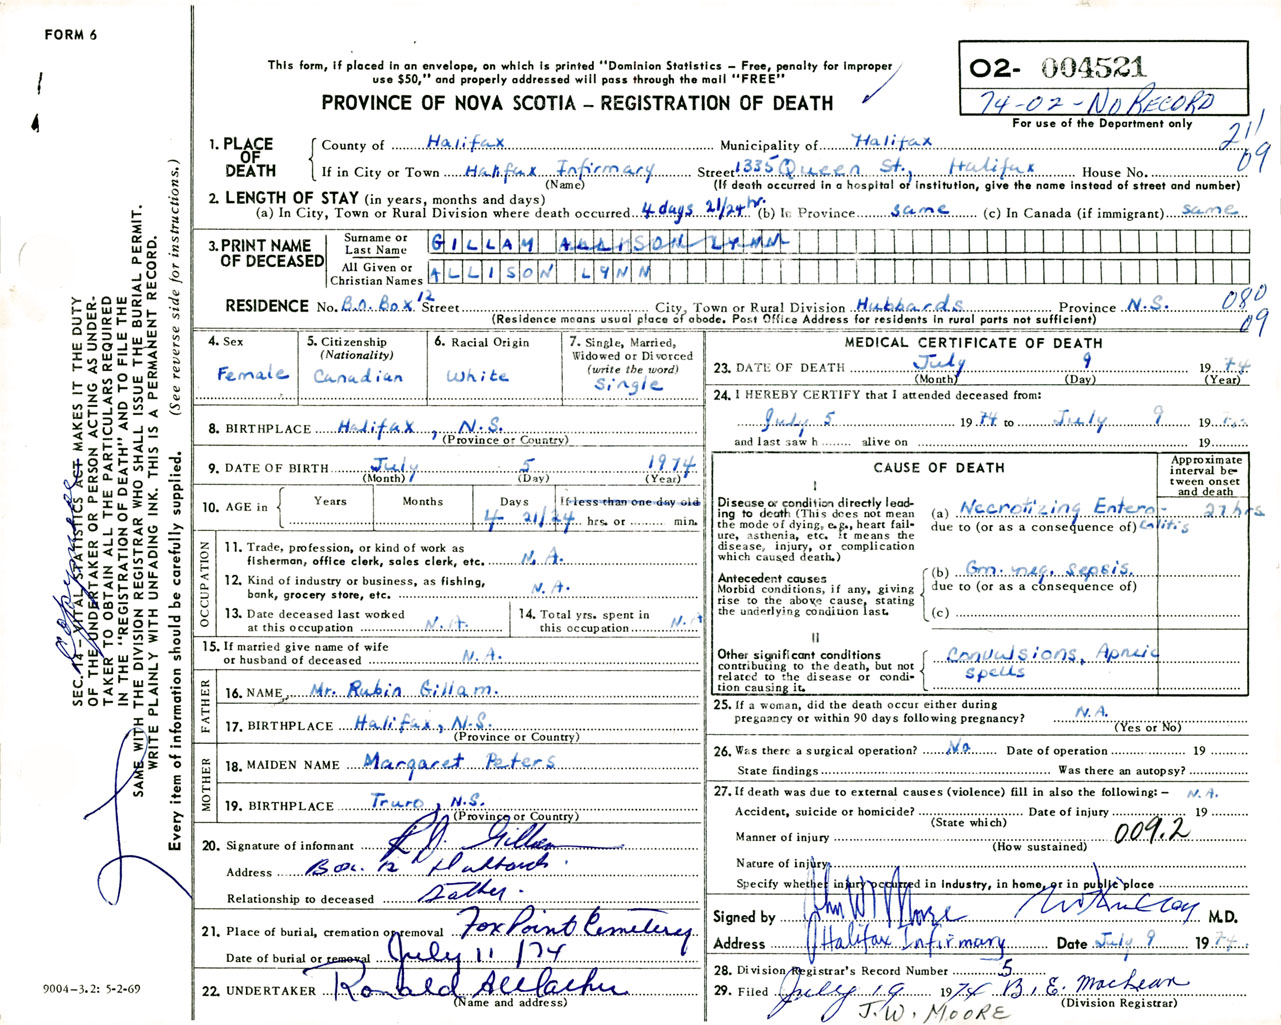 FORM 6
This form, if placed in an envelope, on which is printed "Dominion Statistics – Free, penalty for improper
use $50," and properly addressed will pass through the mail "FREE"
PROVINCE OF NOVA SCOTIA – REGISTRATION OF DEATH
02- 004521
74-02-NO RECORD
For use of the Department only
211
09
1. PLACE OF DEATH
County of Halifax Municipality of Halifax
If in City or Town Halifax Infirmary Street 1335 Queen St., Halifax House No.
(Name) (If death occurred in a hospital or institution, give the name instead of street and number)
2. LENGTH OF STAY (in years, months and days)
(a) In City, Town or Rural Division where death occurred 4 days 21/24 hr. (b) In Province same (c) In Canada (if immigrant) same
3. PRINT NAME OF DECEASED
Surname or Last Name GILLAM ALLISON LYNN
All Given or Christian Names ALLISON LYNN
RESIDENCE No. B.O. Box 12 Street City, Town or Rural Division Hubbards Province N.S.
(Residence means usual place of abode. Post Office Address for residents in rural parts not sufficient)
080
09
4. Sex
Female
5. Citizenship
(Nationality)
Canadian
6. Racial Origin
White
7. Single, Married,
Widowed or Divorced
(write the word)
Single
8. BIRTHPLACE Halifax, N.S.
(Province or Country)
9. DATE OF BIRTH July 5 1974
(Month) (Day) (Year)
10. AGE in Years Months Days If less than one day old
4 21/24 hrs. or min.
OCCUPATION
11. Trade, profession, or kind of work as
fisherman, office clerk, sales clerk, etc. N.A.
12. Kind of industry or business, as fishing,
bank, grocery store, etc. N.A.
13. Date deceased last worked
at this occupation N.A.
14. Total yrs. spent in
this occupation N.A.
15. If married give name of wife
or husband of deceased N.A.
FATHER
16. NAME Mr. Rubin Gillam.
17. BIRTHPLACE Halifax, N.S.
(Province or Country)
MOTHER
18. MAIDEN NAME Margaret Peters
19. BIRTHPLACE Truro, N.S.
(Province or Country)
20. Signature of informant Gillam
Address Box 12 Hubbards.
Relationship to deceased Father.
21. Place of burial, cremation or removal Fox Point Cemetery
Date of burial or removal July 11/74
22. UNDERTAKER Ronald
(Name and address)
MEDICAL CERTIFICATE OF DEATH
23. DATE OF DEATH July 9 1974
(Month) (Day) (Year)
24. I HEREBY CERTIFY that I attended deceased from:
July 5 1974 to July 9 19
and last saw h alive on 19
CAUSE OF DEATH
Approximate
interval be-
tween onset
and death
I
Disease or condition directly lead-
ing to death (This does not mean
the mode of dying, e.g., heart fail-
ure, asthenia, etc. It means the
disease, injury, or complication
which caused death.)
(a) Necrotizing Entero- 27 hrs
due to (or as a consequence of) Colitis
Antecedent causes
Morbid conditions, if any, giving
rise to the above cause, stating
the underlying condition last.
(b) Gm. neg. sepsis.
due to (or as a consequence of)
(c)
II
Other significant conditions
contributing to the death, but not
related to the disease or condi-
tion causing it.
Convulsions, Apneic
spells
25. If a woman, did the death occur either during
pregnancy or within 90 days following pregnancy? N.A.
(Yes or No)
26. Was there a surgical operation? No Date of operation 19
State findings Was there an autopsy?
27. If death was due to external causes (violence) fill in also the following: – N.A.
Accident, suicide or homicide? Date of injury 19
(State which)
Manner of injury 009.2
(How sustained)
Nature of injury
Specify whether injury occurred in industry, in home, or in public place
Signed by John W Moore M.D.
Address Halifax Infirmary Date July 9 1974.
28. Division Registrar's Record Number 5
29. Filed July 19 1974 B.E. MacLean
(Division Registrar)
J.W. MOORE
SEC. 14 – VITAL STATISTICS ACT MAKES IT THE DUTY
OF THE UNDERTAKER OR PERSON ACTING AS UNDER-
TAKER TO OBTAIN ALL THE PARTICULARS REQUIRED
IN THE "REGISTRATION OF DEATH" AND TO FILE THE
SAME WITH THE DIVISION REGISTRAR WHO SHALL ISSUE THE BURIAL PERMIT.
WRITE PLAINLY WITH UNFADING INK. THIS IS A PERMANENT RECORD.
Every item of information should be carefully supplied. (See reverse side for instructions.)
9004-3.2: 5-2-69